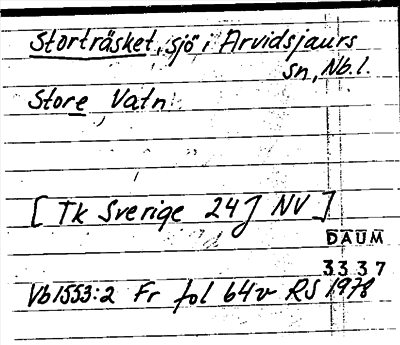 Storträsket, sjö i Arvidsjaurs
sn, Nb.l.
Store Vatn
[ Tk Sverige 24J NV ]
DAUM
3337
Vb 1553:2 Fr fol 64v RS 1978